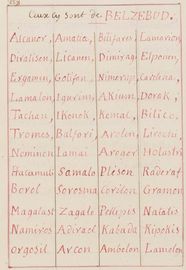 Ceux cy sont de BELZEBUD.
Alcanor, Amatia, Bilifares, Lamarion
Diralisen, Licanen, Dimirag, Elponen,
Ergamin, Gotifan, Nimorup, Carelena,
Lamalon, Igurim, Akium, Dorak,
Tachan, Ikonok, Kemal, Bilico,
Tromes, Balfori, Arolen, Lirochi,
Nominon, Lamai, Arogor, Holastri
Hacamuli, Samalo, Plison, Raderaf
Borol, Sorosma, Corilon, Gramon
Magalast, Zagalo, Pellipis, Natalis
Namiros, Adirael, Kabada, Kipokis
Orgosil, Arcon, Ambolon, Lamolon